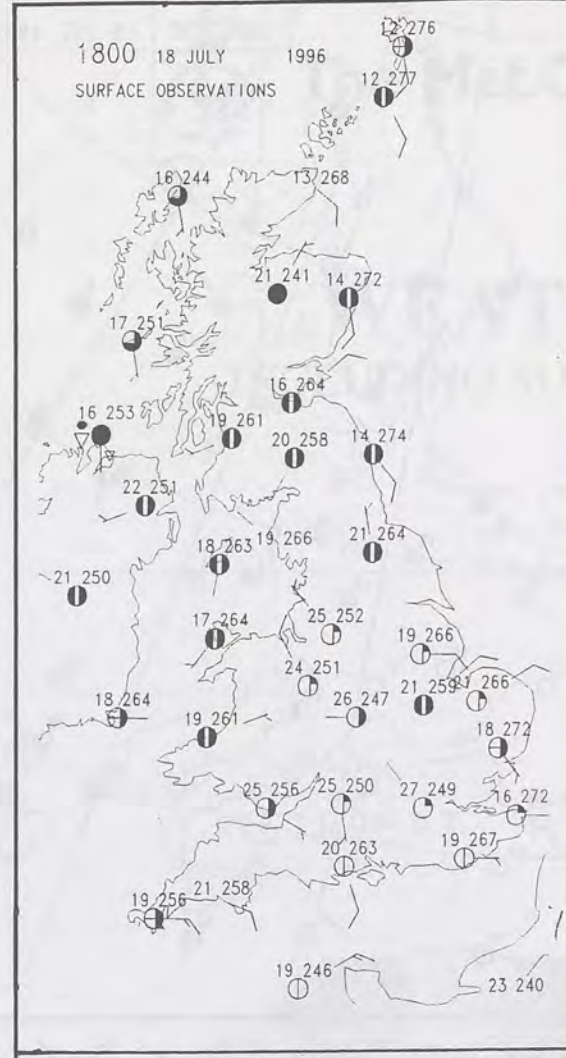 12 276
1800 18 JULY 1996
SURFACE OBSERVATIONS
12 277
16 244
13 268
21 241
14 272
17 251
16 264
16 253
19 261
20 258
14 274
22 251
19 266
18 263
21 264
21 250
17 264
25 252
19 266
24 251
21 259
21 266
18 264
26 247
19 261
18 272
25 256
25 250
27 249
16 272
20 263
19 267
19 256
21 258
19 246
23 240